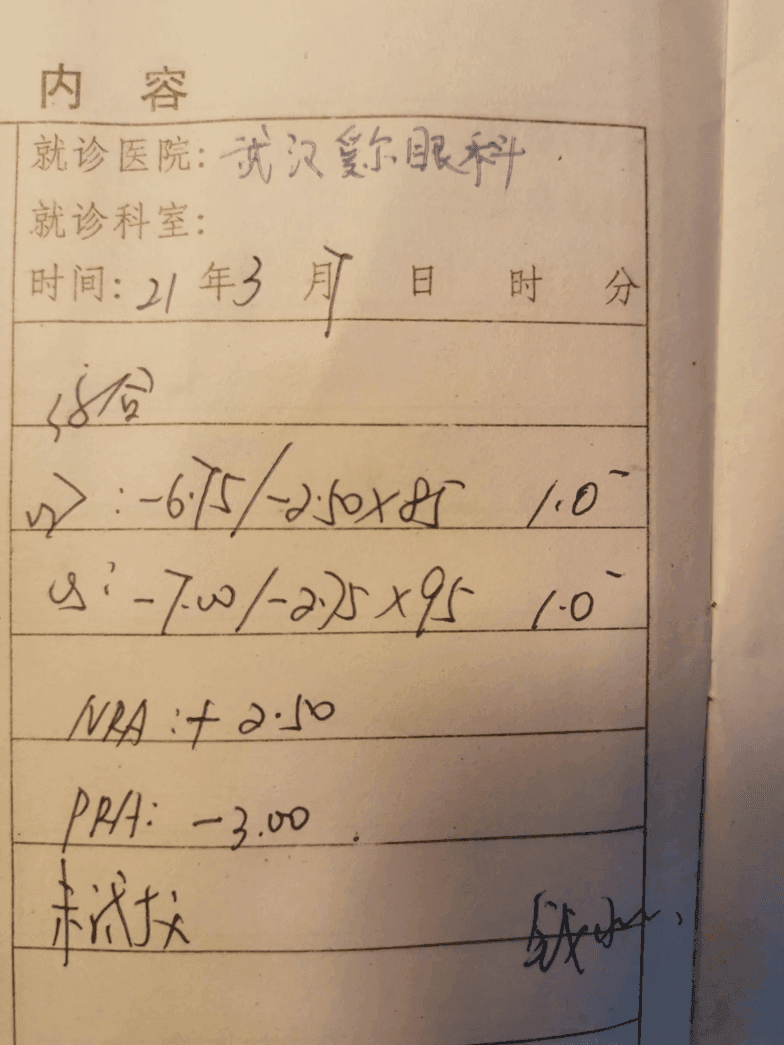 内 容
就诊医院: 武汉爱尔眼科
就诊科室:
时间: 21 年 3 月 9 日 时 分
综合
OD: -6.75/-2.50×85 1.0⁻
OS: -7.00/-2.75×95 1.0⁻
NRA: +2.50
PRA: -3.00
未试戴